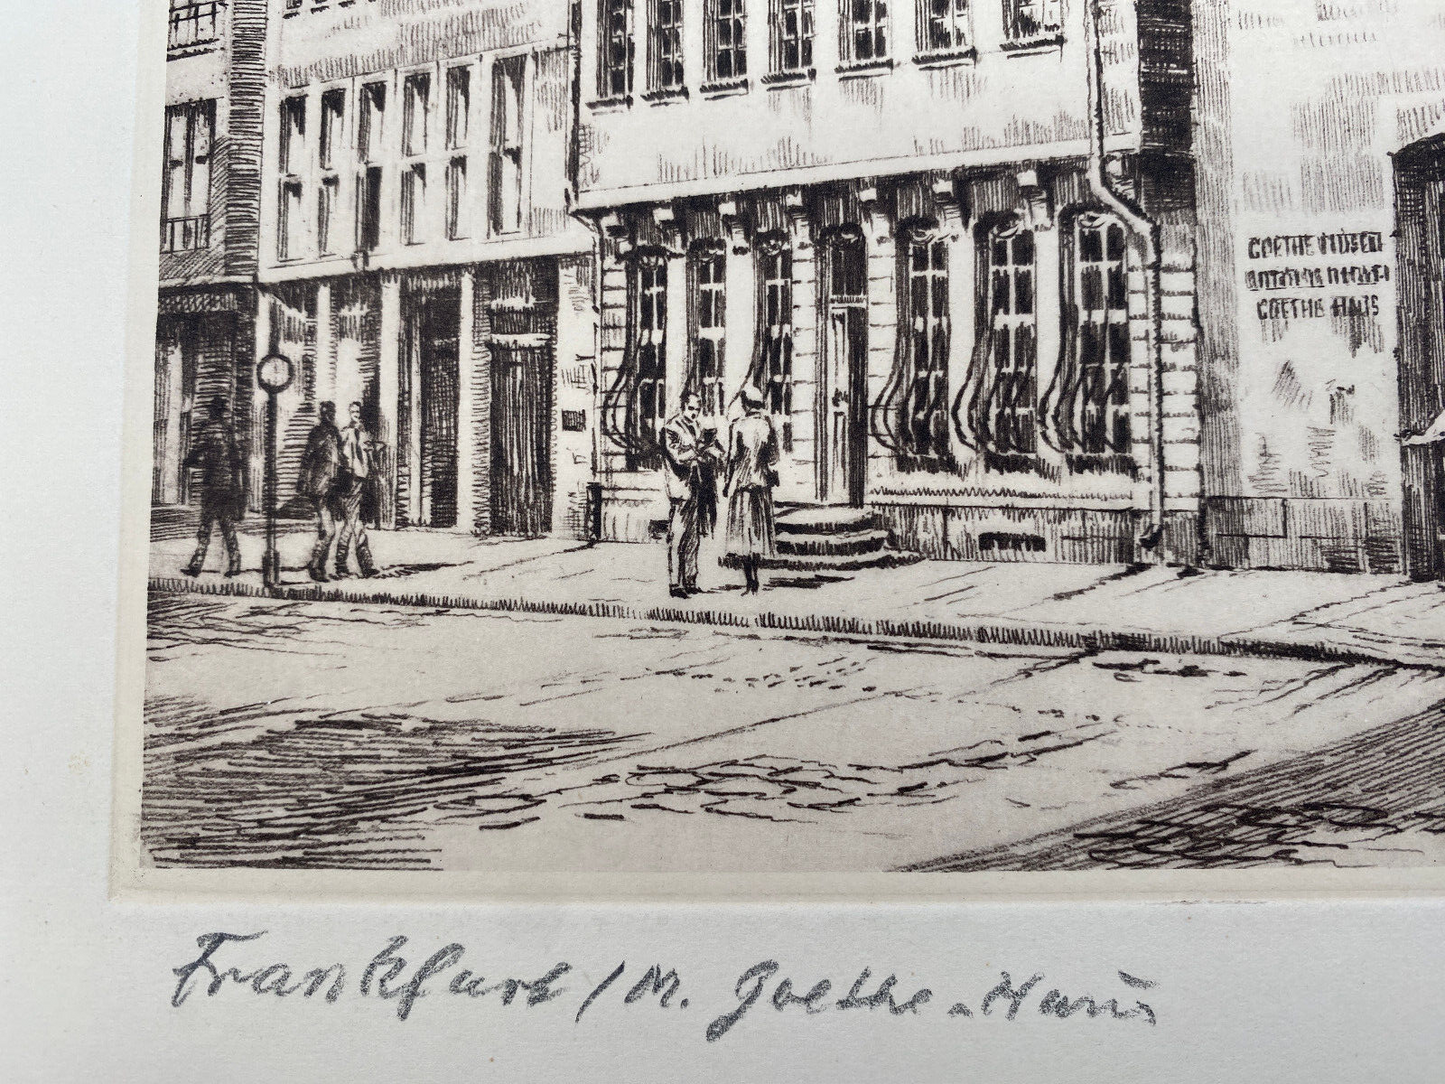 GOETHE MUSEUM
GOETHE HAUS
Frankfurt/M. Goethe-Haus